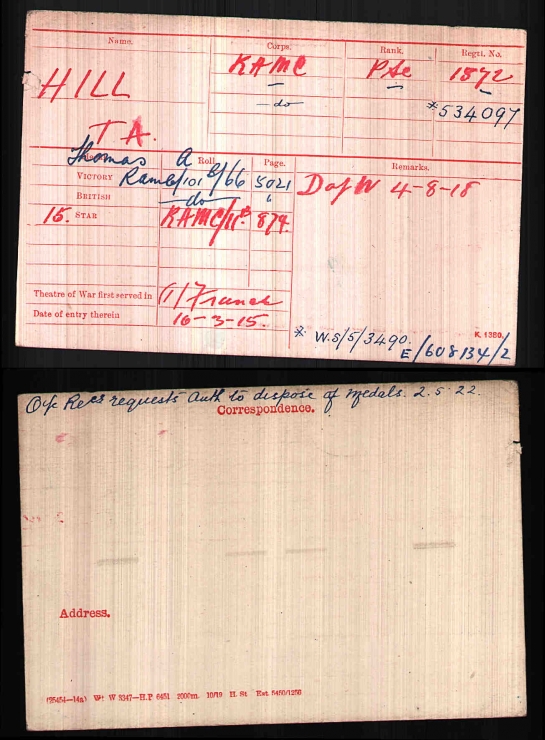 Name. Corps. Rank. Regtl. No.
HILL RAMC Pte 1872
do *534097
T A.
Thomas A
Roll Page. Remarks.
VICTORY RAMC/101 B/66 5021 D of W 4-8-18
BRITISH do "
15. STAR RAMC/11B 874.
Theatre of War first served in (1) France
Date of entry therein 16-3-15.
* W.S/5/3490. K. 1380.
E/608134/2
O i/c Recs requests Auth to dispose of medals. 2.5.22.
Correspondence.
Address.
(25454—14a) Wt W 3347—H.P 6451 2000m. 10/19 H. St Est 5450/1250